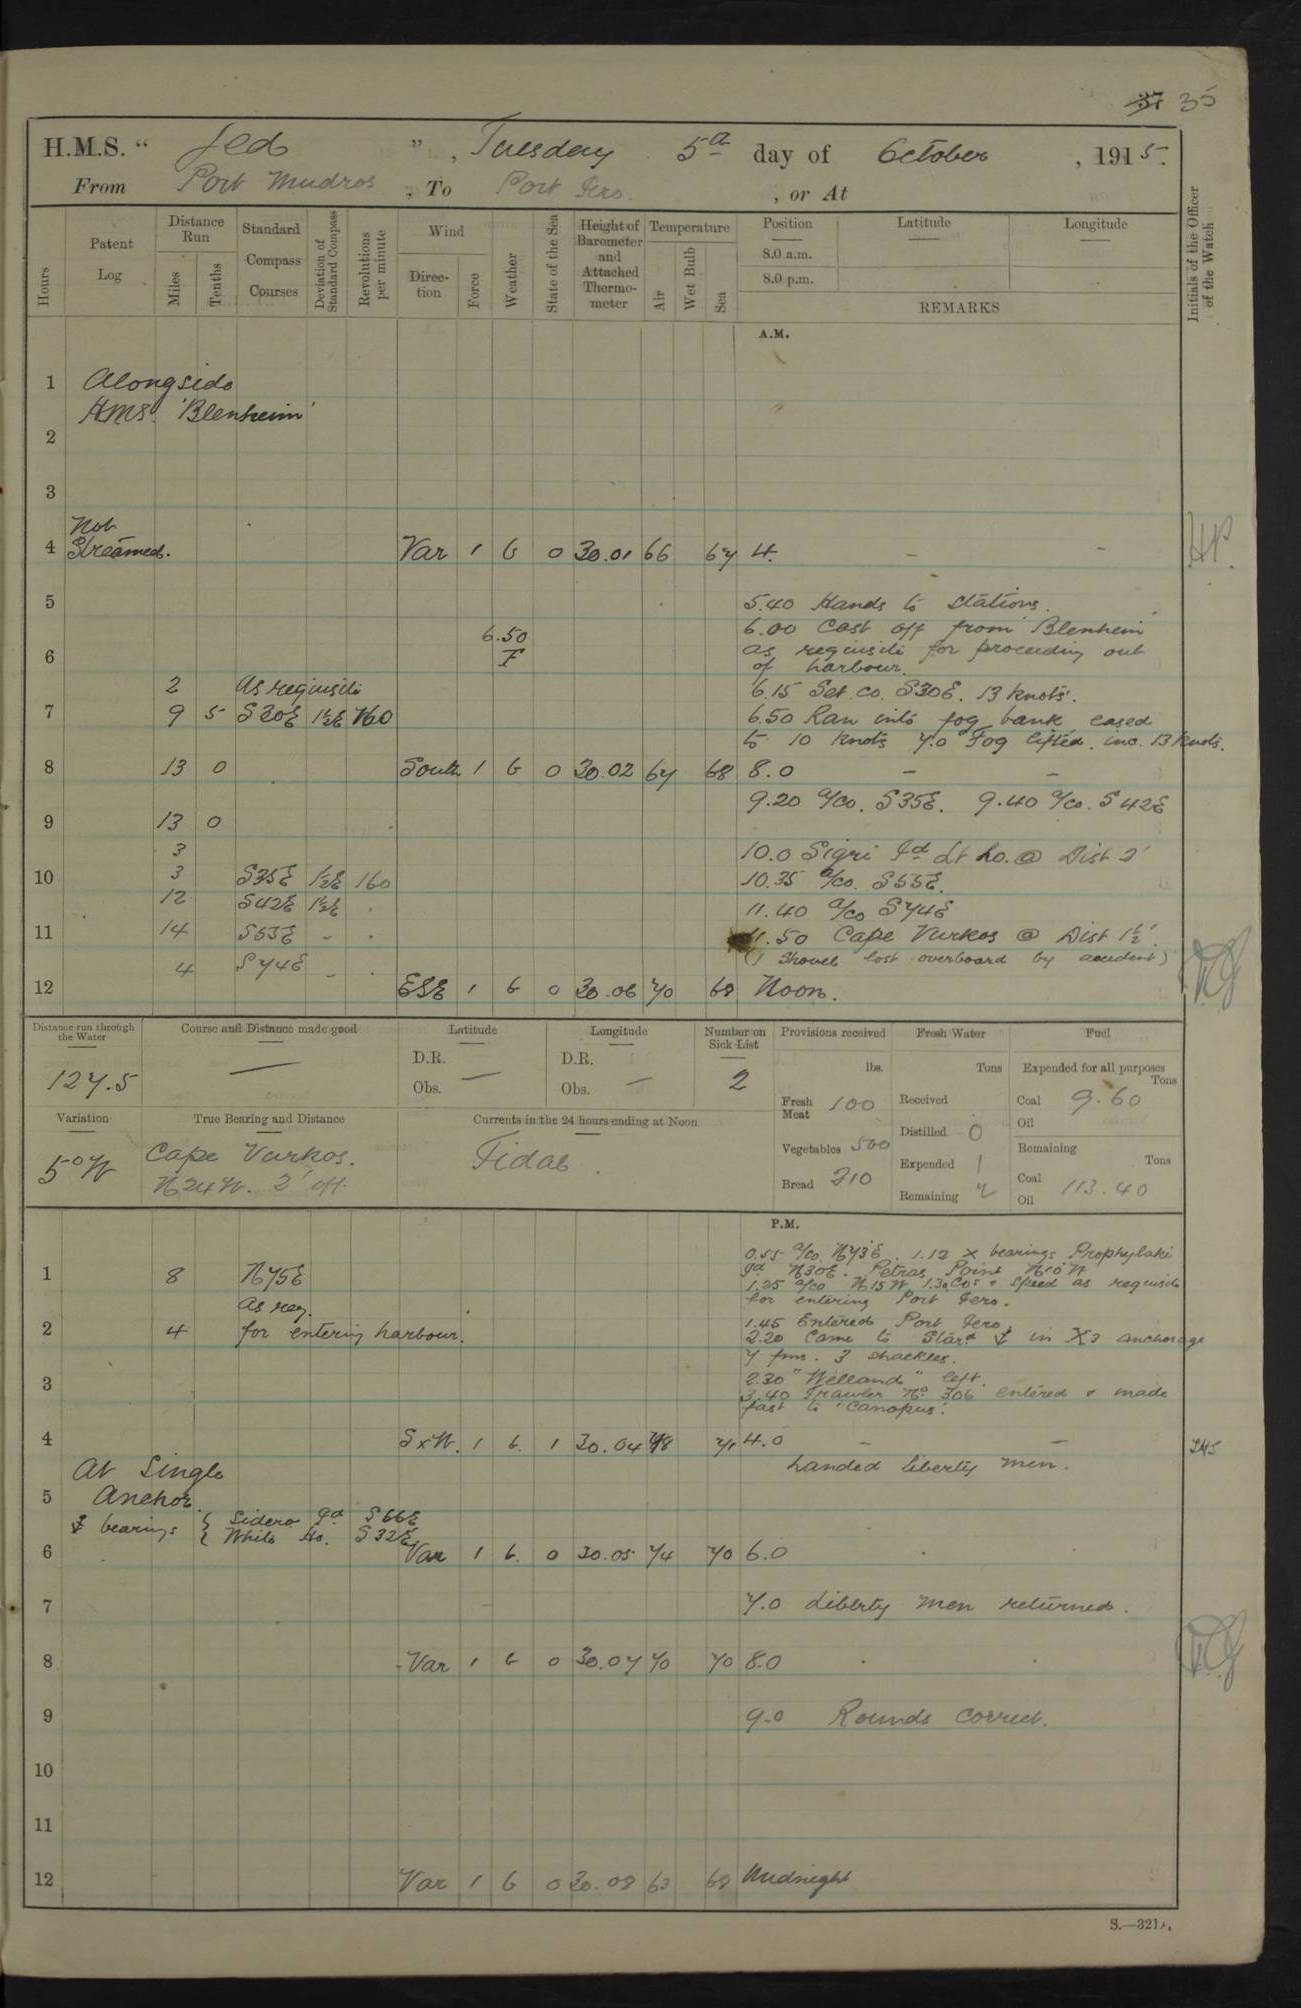 37 35
H.M.S. " Jed ", Tuesday 5th day of October, 1915.
From Port Mudros, To Port Iero. , or At
Hours
Patent Log
Distance Run
Miles
Tenths
Standard Compass Courses
Deviation of Standard Compass
Revolutions per minute
Wind
Direction
Force
Weather
State of the Sea
Height of Barometer and Attached Thermometer
Temperature
Air
Wet Bulb
Sea
Position
8.0 a.m.
8.0 p.m.
Latitude
Longitude
REMARKS
Initials of the Officer of the Watch
A.M.
1 Alongside
HMS. 'Blenheim'
2
3
Not
4 Streamed. Var 1 b 0 30.01 66 67 4. – –
5 5.40 Hands to stations.
6.50 6.00 Cast off from 'Blenheim'
6 F as requisite for proceeding out
of harbour.
2 As requisite 6.15 Set co. S30E. 13 knots.
7 9 5 S30E 1½E 160 6.50 Ran into fog bank eased
to 10 knots 7.0 Fog lifted. inc. 13 knots.
8 13 0 South 1 b 0 30.02 67 68 8.0 – –
9.20 a/co. S35E. 9.40 a/co. S42E
9 13 0
3 10.0 Sigri Id Lt Ho. @ Dist 2'
10 3 S35E 1½E 160 10.35 a/co. S55E.
12 S42E 1½E 11.40 a/co S74E
11 14 S53E - 11.50 Cape Vurkos @ Dist 1½'.
4 S74E - (1 Shovel lost overboard by accident)
12 ESE 1 b 0 30.06 70 68 Noon.
Distance run through the Water
127.5
Course and Distance made good
—
Latitude
D.R.
Obs. —
Longitude
D.R.
Obs. —
Number on Sick List
2
Provisions received
lbs.
Fresh Meat 100
Vegetables 500
Bread 210
Fresh Water
Tons
Received
Distilled 0
Expended 1
Remaining 7
Fuel
Expended for all purposes
Tons
Coal 9.60
Oil
Remaining
Tons
Coal 113.40
Oil
Variation
5°W
True Bearing and Distance
Cape Vurkos.
N24W. 2' off.
Currents in the 24 hours ending at Noon
Tidal.
P.M.
0.55 a/co. N73E. 1.12 X bearings Prophylaki
1 8 N75E Id N30E. Petras Point N10W
1.25 a/co N15W 1.30 Cos & Speed as requisite
as req. for entering Port Iero.
1.45 Entered Port Iero.
2 4 for entering harbour. 2.20 Came to Stard ⚓ in X3 anchorage
7 fms. 3 shackles.
3 2.30 "Welland" left.
3.40 Trawler No 306 entered & made
fast to 'Canopus'.
4 S x W. 1 b. 1 30.04 78 71 4.0 – – 
At Single landed liberty men.
5 Anchor.
⚓ bearings { Sidero Id S66E
{ White Ho. S32E
6 Var 1 b. 0 30.05 74 70 6.0
7 7.0 Liberty men returned.
8 Var 1 b 0 30.07 70 70 8.0
9 9.0 Rounds correct.
10
11
12 Var 1 b 0 30.08 63 68 Midnight
S.—321A.